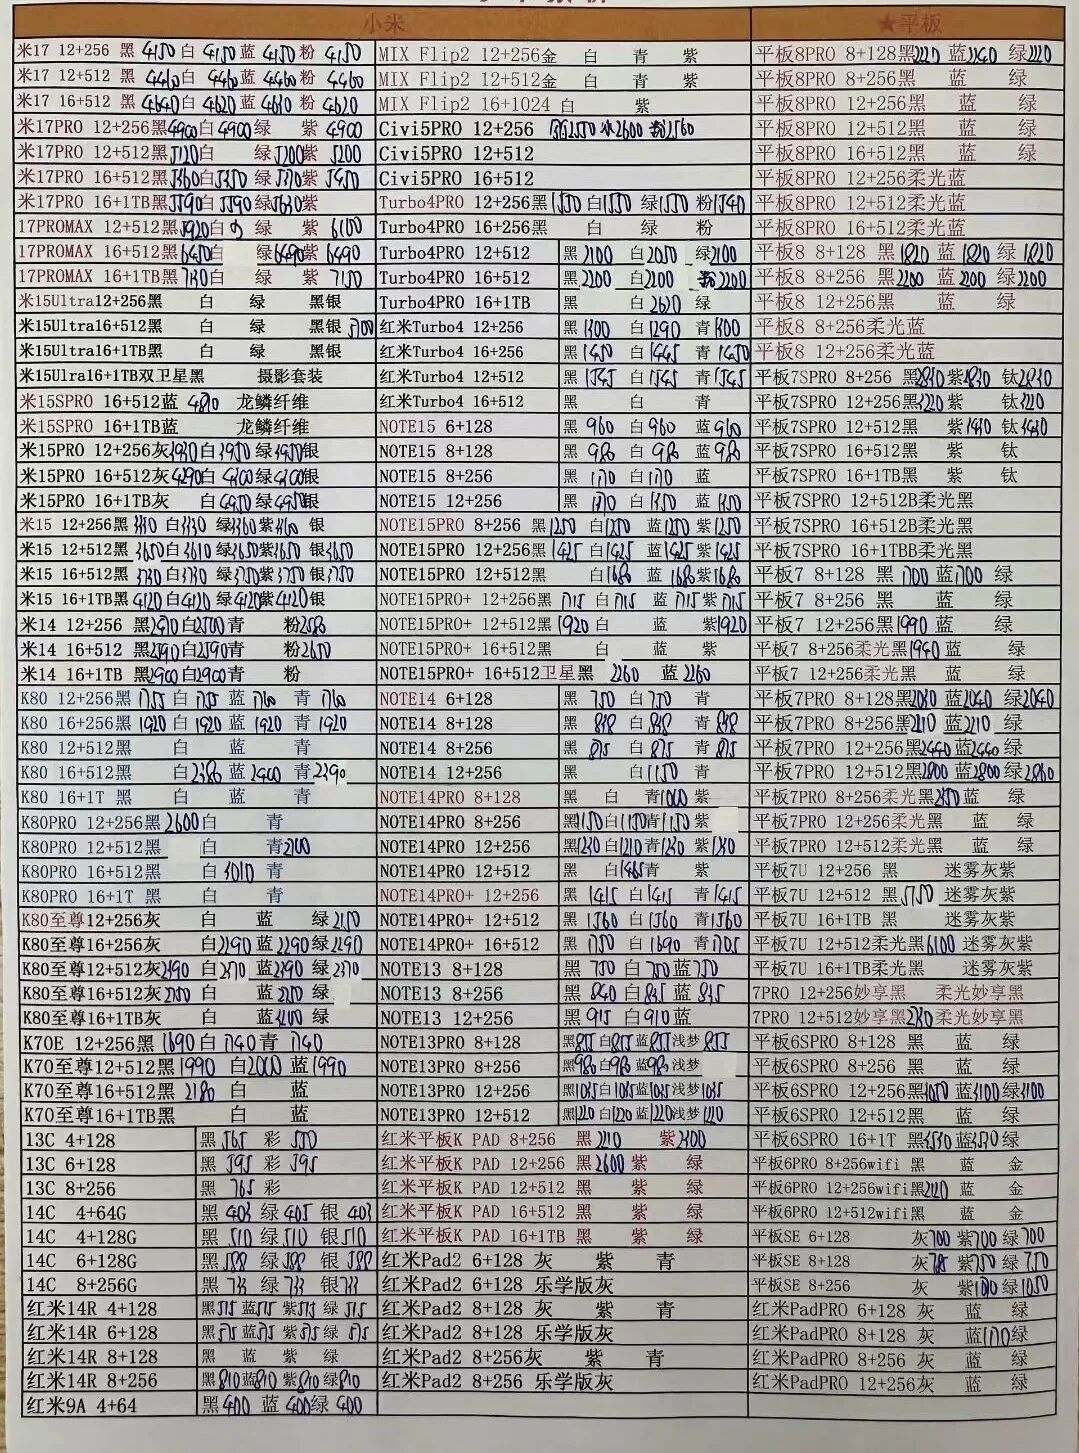 小米
★平板
米17 12+256 黑 4150 白 4150 蓝 4150 粉 4150
米17 12+512 黑 4460 白 4460 蓝 4460 粉 4460
米17 16+512 黑 4640 白 4620 蓝 4610 粉 4620
米17PRO 12+256黑4900白4900绿 紫 4900
米17PRO 12+512黑5120白 绿5200紫 5200
米17PRO 16+512黑 白 绿 紫
米17PRO 16+1TB黑5590白5590绿5630紫
17PROMAX 12+512黑5920白 绿 紫 6100
17PROMAX 16+512黑6450白 绿6490紫 6490
17PROMAX 16+1TB黑 白 绿 紫 7150
米15Ultra12+256黑 白 绿 黑银
米15Ultra16+512黑 白 绿 黑银 5700
米15Ultra16+1TB黑 白 绿 黑银
米15Ulra16+1TB双卫星黑 摄影套装
米15SPRO 16+512蓝 龙鳞纤维
米15SPRO 16+1TB蓝 龙鳞纤维
米15PRO 12+256灰 白 绿 银
米15PRO 16+512灰4290白4300绿4300银
米15PRO 16+1TB灰 白4950绿4950银
米15 12+256黑 白 绿 紫 银
米15 12+512黑3650白3610绿3650紫3650 银3650
米15 16+512黑 白 绿3750紫3750 银3750
米15 16+1TB黑4120白4120绿4120紫4120银
米14 12+256 黑 白2500青 粉2580
米14 16+512 黑 白 青 粉2650
米14 16+1TB 黑2900白2900青 粉
K80 12+256黑1755白1755蓝1760青1760
K80 16+256黑1920白1920蓝1920青1920
K80 12+512黑 白 蓝 青
K80 16+512黑 白2380蓝2400青2390
K80 16+1T 黑 白 蓝 青
K80PRO 12+256黑2600白 青
K80PRO 12+512黑 白 青
K80PRO 16+512黑 白3010青
K80PRO 16+1T 黑 白 青
K80至尊12+256灰 白 蓝 绿2150
K80至尊16+256灰 白2290蓝2290绿2290
K80至尊12+512灰 白 蓝 绿
K80至尊16+512灰 白 蓝 绿
K80至尊16+1TB灰 白 蓝 绿
K70E 12+256黑1690白1740青1740
K70至尊12+512黑1990白2000蓝1990
K70至尊16+512黑2180白 蓝
K70至尊16+1TB黑 白 蓝
13C 4+128 黑 565 彩 550
13C 6+128 黑 595 彩 595
13C 8+256 黑 765 彩
14C 4+64G 黑 403 绿 405 银 403
14C 4+128G 黑 510 绿 510 银 510
14C 6+128G 黑 588 绿 588 银 588
14C 8+256G 黑 733 绿 733 银 733
红米14R 4+128 黑515蓝515紫515绿515
红米14R 6+128 黑575蓝575紫575绿575
红米14R 8+128 黑 蓝 紫 绿
红米14R 8+256 黑810蓝810紫810绿810
红米9A 4+64 黑400蓝400绿400
MIX Flip2 12+256金 白 青 紫
MIX Flip2 12+512金 白 青 紫
MIX Flip2 16+1024 白 紫
Civi5PRO 12+256 2550 2600 2560
Civi5PRO 12+512
Civi5PRO 16+512
Turbo4PRO 12+256黑1550白1550绿1550粉1540
Turbo4PRO 16+256黑 白 绿 粉
Turbo4PRO 12+512 黑2100 白2050 绿2100
Turbo4PRO 16+512 黑2200 白2200 2200
Turbo4PRO 16+1TB 黑 白2620绿
红米Turbo4 12+256 黑1300白1290青1300
红米Turbo4 16+256 黑1450白1445青1450
红米Turbo4 12+512 黑1545白1545青1545
红米Turbo4 16+512 黑 白 青
NOTE15 6+128 黑 960 白960 蓝960
NOTE15 8+128 黑 980 白980 蓝980
NOTE15 8+256 黑1170白1170蓝
NOTE15 12+256 黑 白1350蓝1350
NOTE15PRO 8+256 黑1250 白1250 蓝1250紫1250
NOTE15PRO 12+256黑1425白1425蓝1425紫1425
NOTE15PRO 12+512黑 白1680蓝1680紫1680
NOTE15PRO+ 12+256黑1715白1715蓝1715紫1715
NOTE15PRO+ 12+512黑1920白 蓝 紫1920
NOTE15PRO+ 16+512黑 白 蓝 紫
NOTE15PRO+ 16+512卫星黑 2260 蓝 2260
NOTE14 6+128 黑 750 白750青
NOTE14 8+128 黑 838 白838青838
NOTE14 8+256 黑 875 白875青875
NOTE14 12+256 黑 白1150青
NOTE14PRO 8+128 黑 白 青1000紫
NOTE14PRO 8+256 黑1150白1150青1150紫
NOTE14PRO 12+256 黑1230白1210青1230紫1230
NOTE14PRO 12+512 黑 白1465青 紫
NOTE14PRO+ 12+256 黑1415白1415青1415
NOTE14PRO+ 12+512 黑1560白1560青1560
NOTE14PRO+ 16+512 黑1750白1690青1705
NOTE13 8+128 黑 750 白750蓝750
NOTE13 8+256 黑 840 白835蓝835
NOTE13 12+256 黑 915 白910蓝
NOTE13PRO 8+128 黑855白855蓝855浅梦855
NOTE13PRO 8+256 黑980白980蓝980浅梦
NOTE13PRO 12+256 黑1035白1035蓝1035浅梦1035
NOTE13PRO 12+512 黑1220白1220蓝1220浅梦1220
红米平板K PAD 8+256 黑 紫
红米平板K PAD 12+256 黑2600紫 绿
红米平板K PAD 12+512 黑 紫 绿
红米平板K PAD 16+512 黑 紫 绿
红米平板K PAD 16+1TB 黑 紫 绿
红米Pad2 6+128 灰 紫 青
红米Pad2 6+128 乐学版灰
红米Pad2 8+128 灰 紫 青
红米Pad2 8+128 乐学版灰
红米Pad2 8+256灰 紫 青
红米Pad2 8+256 乐学版灰
平板8PRO 8+128黑 蓝 绿
平板8PRO 8+256黑 蓝 绿
平板8PRO 12+256黑 蓝 绿
平板8PRO 12+512黑 蓝 绿
平板8PRO 16+512黑 蓝 绿
平板8PRO 12+256柔光蓝
平板8PRO 12+512柔光蓝
平板8PRO 16+512柔光蓝
平板8 8+128 黑1820蓝1820绿1820
平板8 8+256 黑2200蓝2200绿2200
平板8 12+256黑 蓝 绿
平板8 8+256柔光蓝
平板8 12+256柔光蓝
平板7SPRO 8+256 黑 紫 钛
平板7SPRO 12+256黑 紫 钛
平板7SPRO 12+512黑 紫 钛
平板7SPRO 16+512黑 紫 钛
平板7SPRO 16+1TB黑 紫 钛
平板7SPRO 12+512B柔光黑
平板7SPRO 16+512B柔光黑
平板7SPRO 16+1TBB柔光黑
平板7 8+128 黑1700蓝1700绿
平板7 8+256 黑 蓝 绿
平板7 12+256黑1990蓝 绿
平板7 8+256柔光黑1940蓝 绿
平板7 12+256柔光黑 蓝 绿
平板7PRO 8+128黑 蓝2040绿2040
平板7PRO 8+256黑2210蓝2210绿
平板7PRO 12+256黑2440蓝2440绿
平板7PRO 12+512黑2800蓝2800绿2860
平板7PRO 8+256柔光黑 蓝 绿
平板7PRO 12+256柔光黑 蓝 绿
平板7PRO 12+512柔光黑 蓝 绿
平板7U 12+256 黑 迷雾灰紫
平板7U 12+512 黑5150迷雾灰紫
平板7U 16+1TB 黑 迷雾灰紫
平板7U 12+512柔光黑6100迷雾灰紫
平板7U 16+1TB柔光黑 迷雾灰紫
7PRO 12+256妙享黑 柔光妙享黑
7PRO 12+512妙享黑 柔光妙享黑
平板6SPRO 8+128 黑 蓝 绿
平板6SPRO 8+256 黑 蓝 绿
平板6SPRO 12+256黑 蓝3100绿3100
平板6SPRO 12+512黑 蓝 绿
平板6SPRO 16+1T 黑 蓝 绿
平板6PRO 8+256wifi 黑 蓝 金
平板6PRO 12+256wifi黑 蓝 金
平板6PRO 12+512wifi黑 蓝 金
平板SE 6+128 灰700紫700绿700
平板SE 8+128 灰 紫750绿750
平板SE 8+256 灰 紫 绿1050
红米PadPRO 6+128 灰 蓝 绿
红米PadPRO 8+128 灰 蓝1170绿
红米PadPRO 8+256 灰 蓝 绿
红米PadPRO 12+256灰 蓝 绿